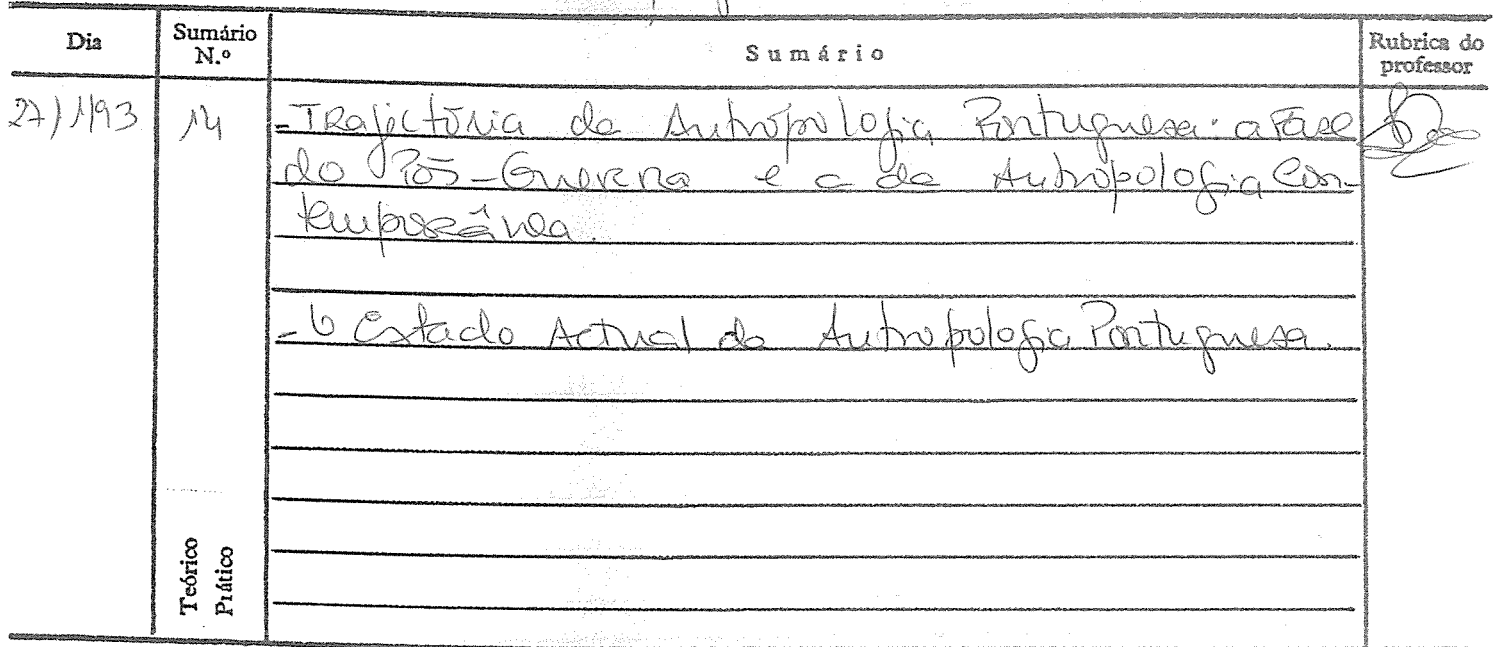 Dia Sumário N.º Sumário Rubrica do professor
27/1/93 14 - Trajectória da Antropologia Portuguesa: a Fase
do Pós-Guerra e a da Antropologia Con-
temporânea.
- O Estado Actual da Antropologia Portuguesa.
Teórico
Prático